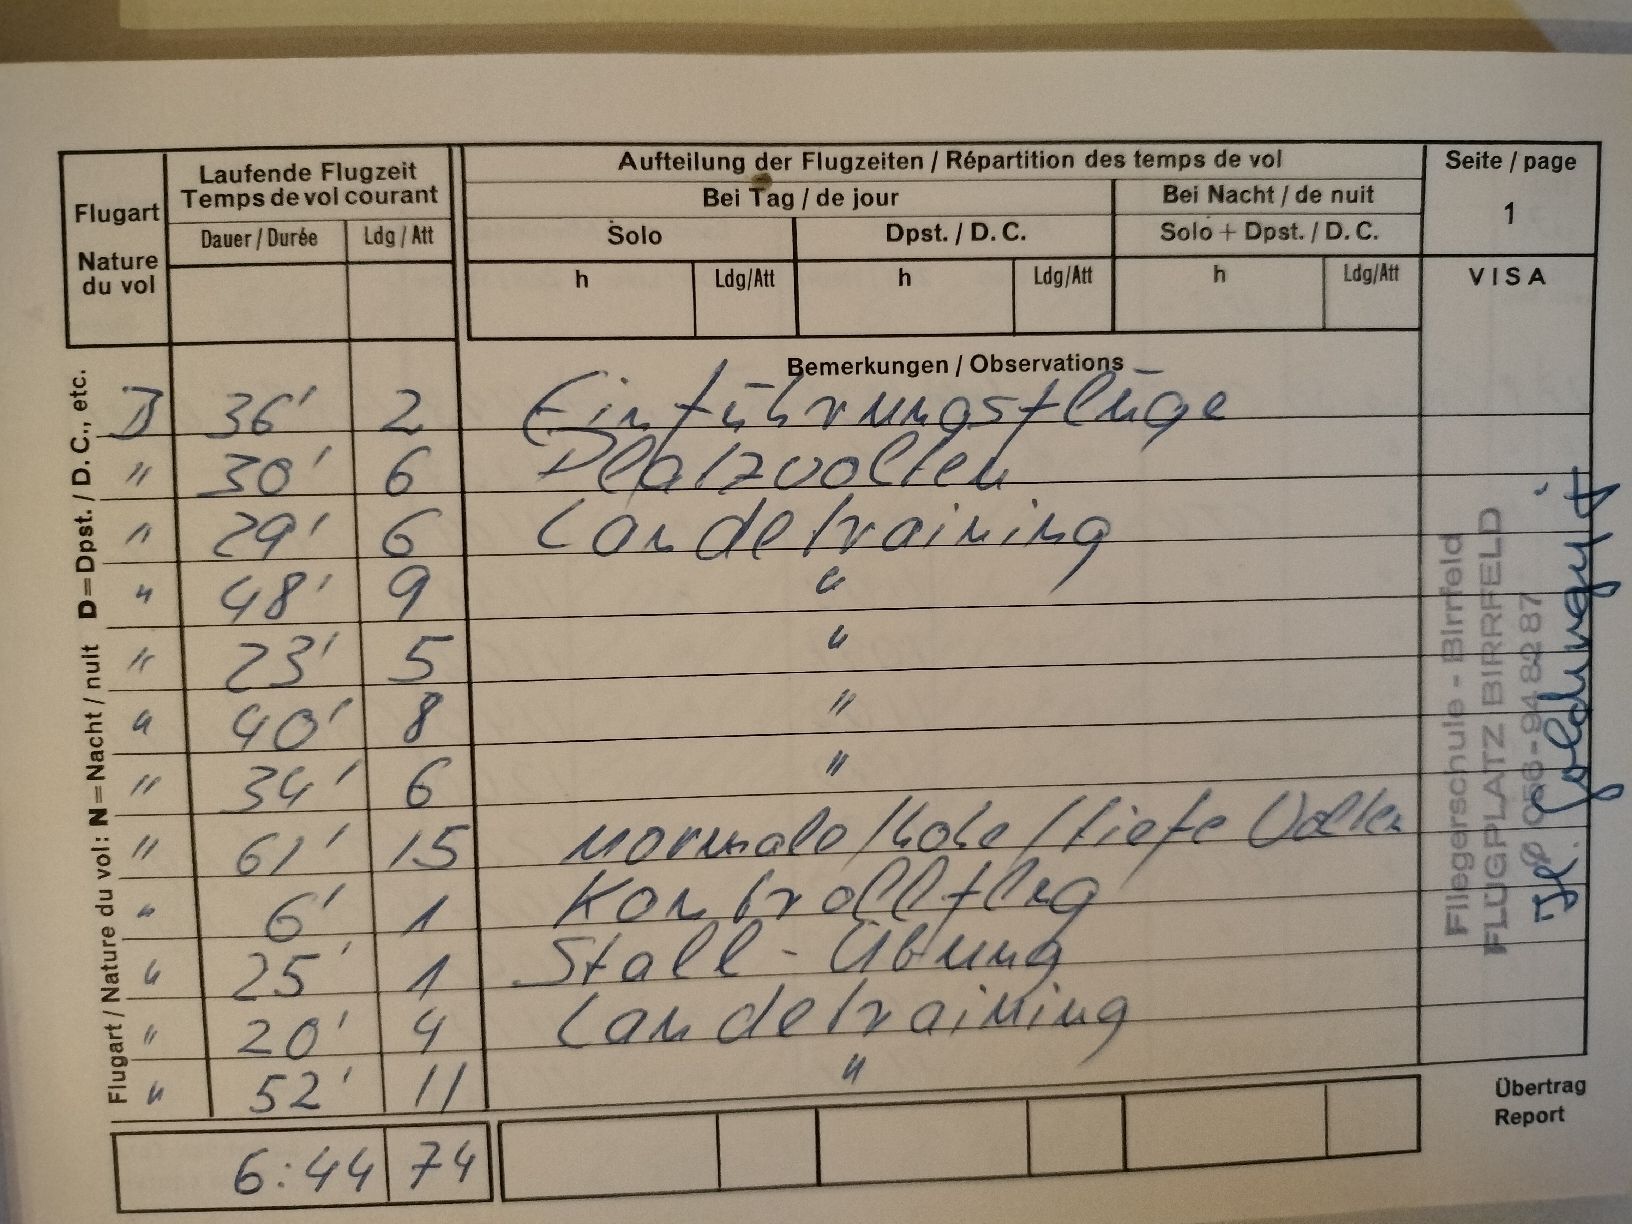 Flugart
Nature
du vol
Laufende Flugzeit
Temps de vol courant
Dauer / Durée Ldg / Att
Aufteilung der Flugzeiten / Répartition des temps de vol
Bei Tag / de jour Bei Nacht / de nuit
Solo Dpst. / D. C. Solo + Dpst. / D. C.
h Ldg/Att h Ldg/Att h Ldg/Att
Seite / page
1
VISA
Bemerkungen / Observations
D 36' 2 Einführungsflüge
" 30' 6 Platzvolten
" 29' 6 Landetraining
" 48' 9 "
" 23' 5 "
" 40' 8 "
" 34' 6 "
" 61' 15 normale/hohe/tiefe Volten
" 6' 1 Kontrollflug
" 25' 1 Stall-Übung
" 20' 4 Landetraining
" 52' 11 "
6:44 74
Übertrag
Report
Flugart / Nature du vol: N = Nacht / nuit D = Dpst. / D. C., etc.
Fliegerschule - Birrfeld
FLUGPLATZ BIRRFELD
056-94 82 87